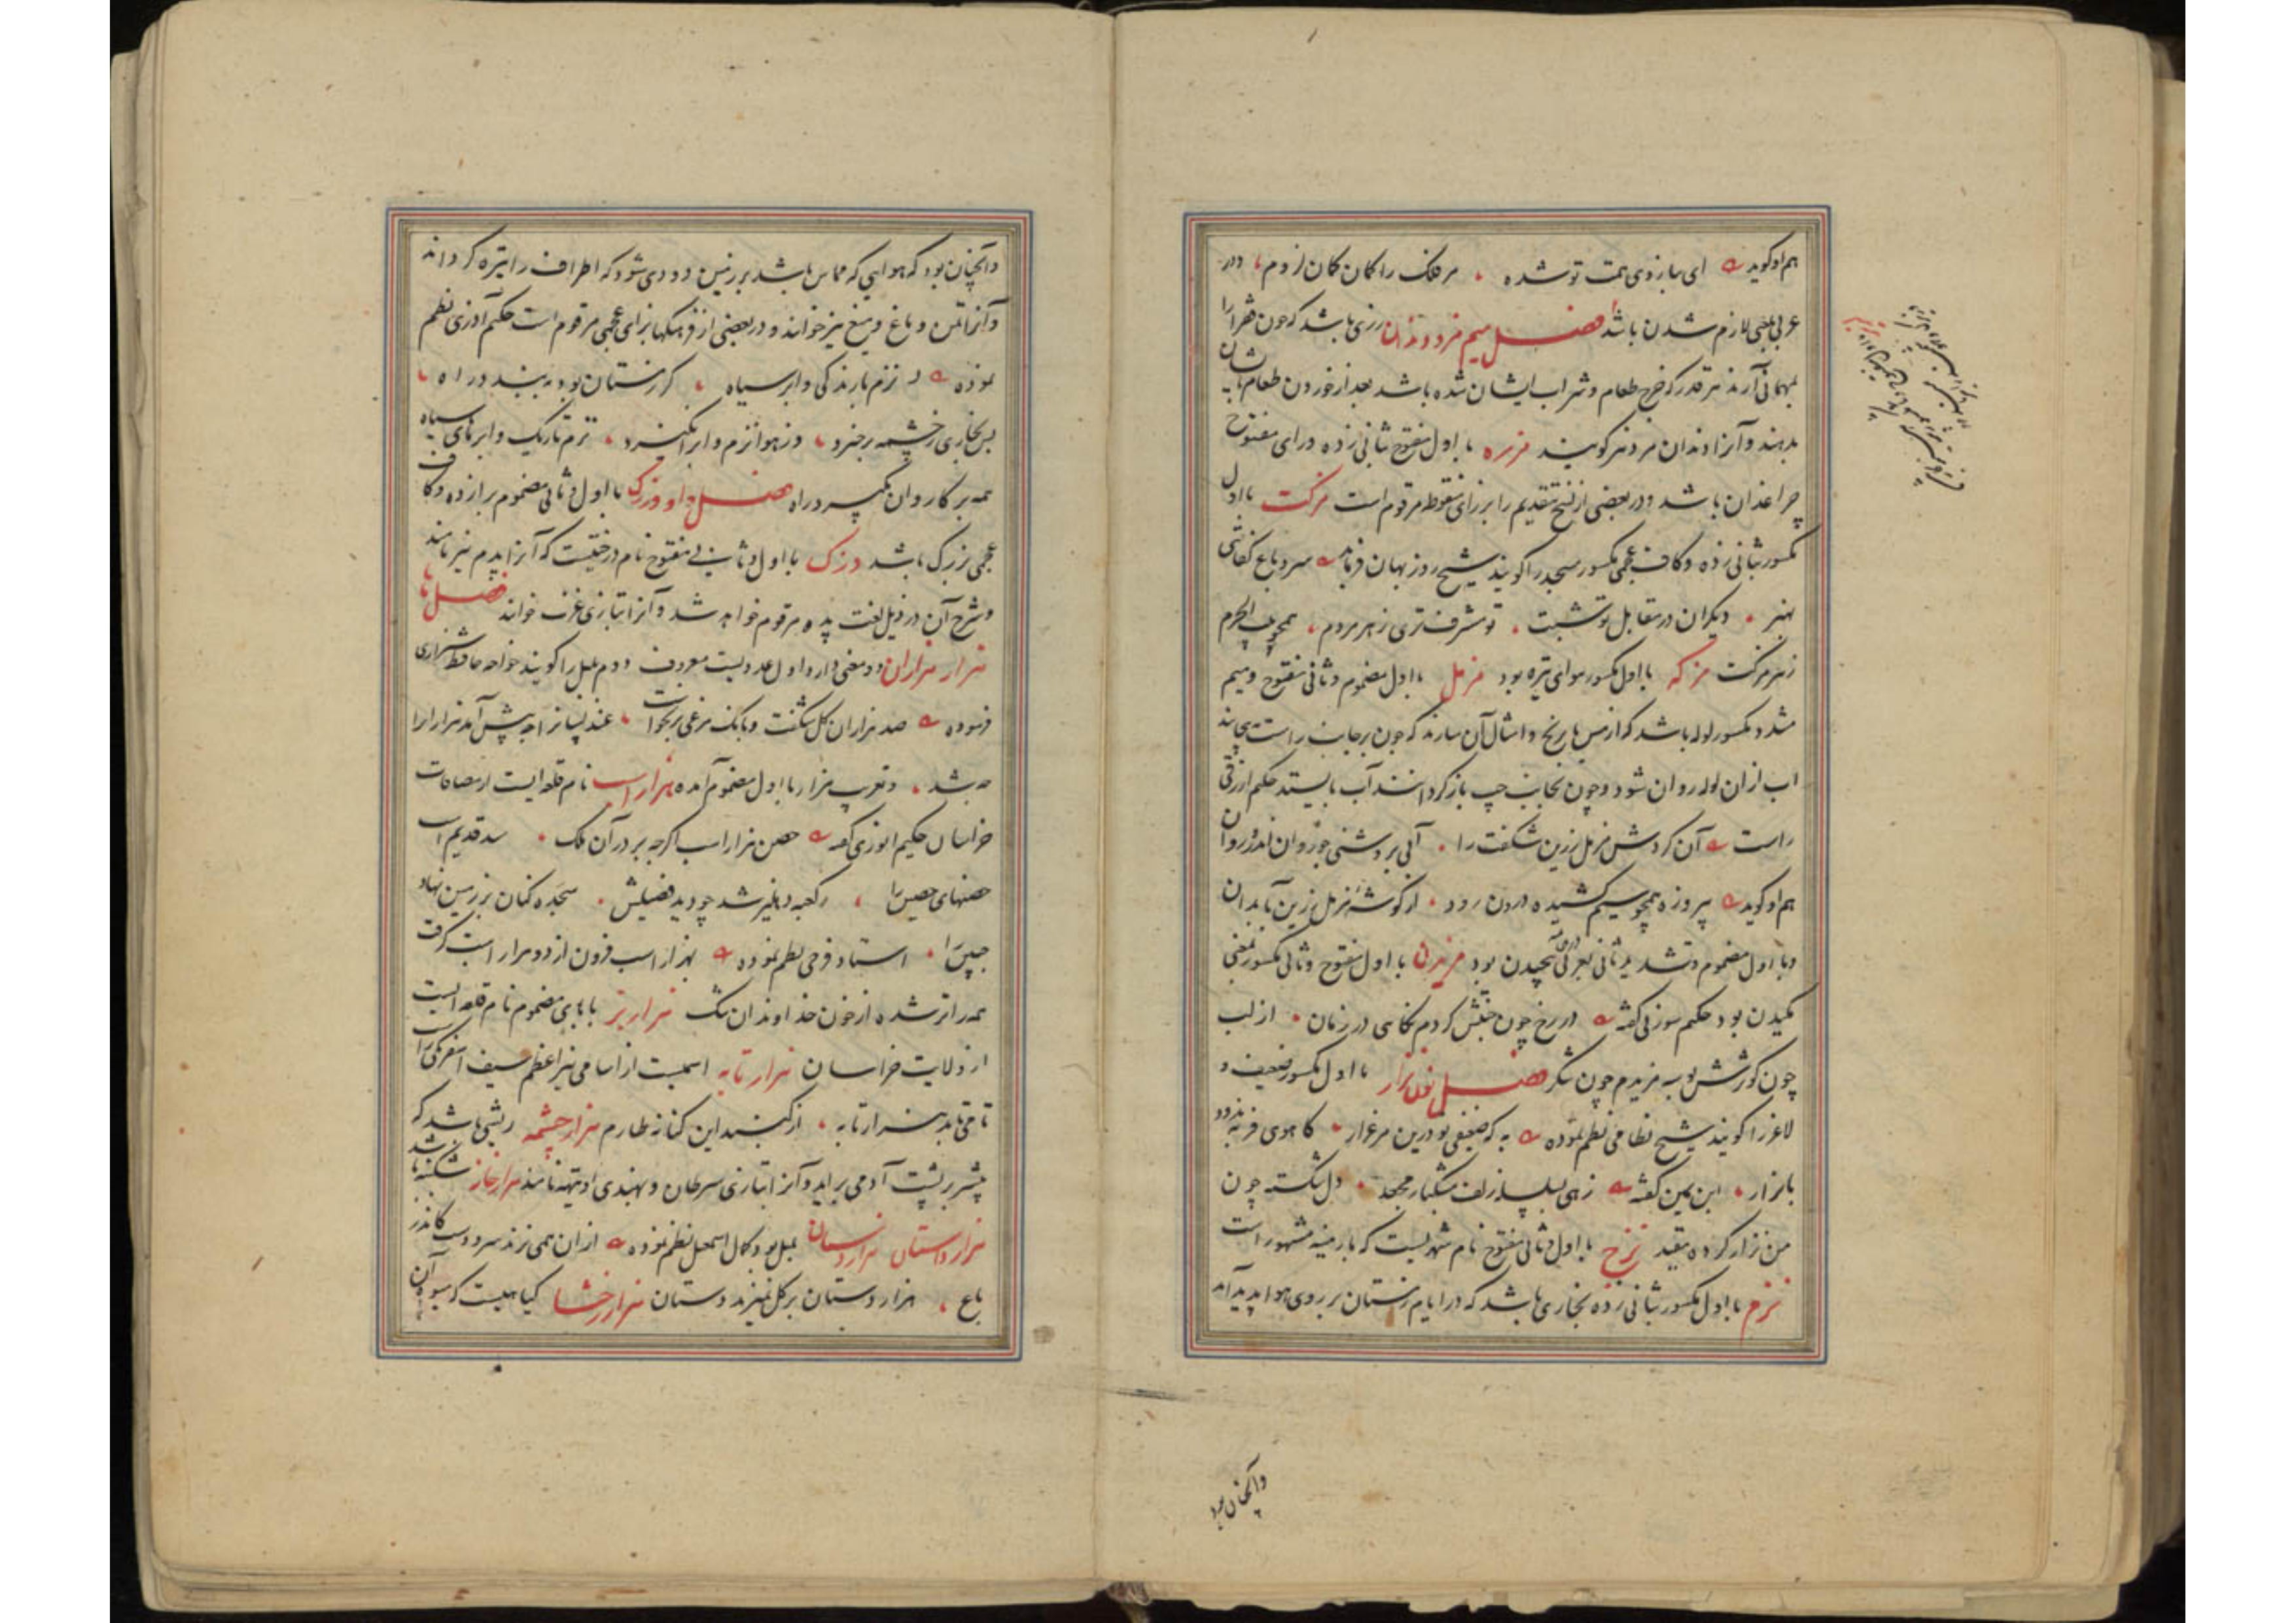 هم او گوید ای ببازوی همت تو شده مر فلک را کمان کمان لزوم و در
عربی بمعنی لازم شدن باشد فصل میم مزد دندان زری باشد که چون فقرا را
بمهمانی آرند هر قدر که خرج طعام و شراب ایشان شده باشد بعد از خوردن طعام بایشان
بدهند و آنرا دندان مزد نیز گویند مزره با اول مفتوح بثانی زده و رای مفتوح
چراغدان باشد و در بعضی از نسخ بتقدیم را بر زای منقوطه مرقوم است مزکت با اول
مکسور بثانی زده و کاف عجمی مکسور مسجد را گویند شیخ روزبهان فرماید سرو باغ
هنر دیگران در مقابل تو شبت تو مشرف تری ز هر مردم همچو بیت الحرم
ز هر مزکت مزکه با اول مکسور هوای تیره بود مزمل با اول مضموم و ثانی مفتوح و میم
مشدد مکسور لوله باشد که از مس یا برنج و امثال آن سازند که چون بر جانب راست بپیچانند
اب از ان لوله روان شود و چون بجانب چپ باز گردانند آب بایستد حکیم ازرقی
راست آن گردش مزمل زرین شگفت را آبی بروشنی چو روان اندرو روان
هم او گوید پیروزه همچو سیم کشیده درون رود از گوشه مزمل زرین بابدان
و با اول مضموم و تشدید ثانی بعربی پیچیدن بود مزیدن با اول مفتوح و ثانی مکسور بمعنی
مکیدن بود حکیم سوزنی گفته در رخ چون جنتش کردم نگاهی در زمان از لب
چون کوثرش بوسه مزیدم چون شکر فصل نون نزار با اول مکسور ضعیف و
لاغر را گویند شیخ نظامی نظم نموده به که ضعیفی بود درین مرغزار کاهوی فربه ندود
با نزار ابن یمین گفته زهی بسلسله زلف مشکبار مجعد دل شکسته چون
من نزار کرده مقید نزح با اول و ثانی مفتوح نام شهریست که بارمنیه مشهور است
نزم با اول مکسور بثانی زده بخاری باشد که در ایام زمستان بر روی هوا پدید آمد
وآنچنان بود
وآنچنان بود که هوایی که مماس باشد بر زمین دودی شود که اطراف را تیره گرداند
و آنرا تمن و ماغ و میغ نیز خوانند و در بعضی از فرهنگها بزای عجمی مرقوم است حکیم آذری نظم
نموده نزم بارندگی و ابر سیاه گر زمستان بود ببندد راه
پس بخاری ز چشمه برخیزد وز هوا نزم و ابر انگیزد نزم تاریک و ابرهای سیاه
همه بر کاروان بگیرد راه فصل واو وزرک با اول و ثانی مضموم برازده و کاف
عجمی بزرگ باشد وزک با اول و ثانی مفتوح نام درختیست که آنرا پدم نیز نامند
و شرح آن در ذیل لغت پده مرقوم خواهد شد و آنرا بتازی غرب خوانند فصل ها
هزار هزاران دو معنی دارد اول عددیست معروف دوم بلبل را گویند خواجه حافظ شیرازی
فرموده صد هزاران گل شگفت و بانگ مرغی برنخواست عندلیبان را چه پیش آمد هزاران را
چه شد و تعریب هزار با اول مضموم آمده هزار اسب نام قلعه ایست از مضافات
خراسان حکیم انوری گفته حصن هزار اسب اگر چه بر در آن ملک سد قدیم است
حصنهای حصین را رکعه دهلیز شد چو دید فصیلش سجده کنان بر زمین نهاد
جبین را استاد فرخی نظم نموده بهزار اسب فزون از دو هزار اسب گرفت
همه را تر شده از خون خداوندان تنگ هزاربز با بای مضموم نام قلعه ایست
از ولایت خراسان هزارتابه اسمیست از اسامی نیر اعظم سیف اسفرنگی راست
تا می تابد هزارتابه از گنبد این کبابه طارم هزارچشمه ریشی باشد که
بیشتر بر پشت آدمی براید و آنرا بتازی سرطان و بهندی ادیتهه نامند هزارخانه شکنبه باشد
هزارداستان هزاردستان بلبل بود کمال اسمعیل نظم نموده از ان همی نزند سرود دست کاندر
باغ هزاردستان بر گل نمیزند دستان هزاررخشا گیاهیست که میوه آن